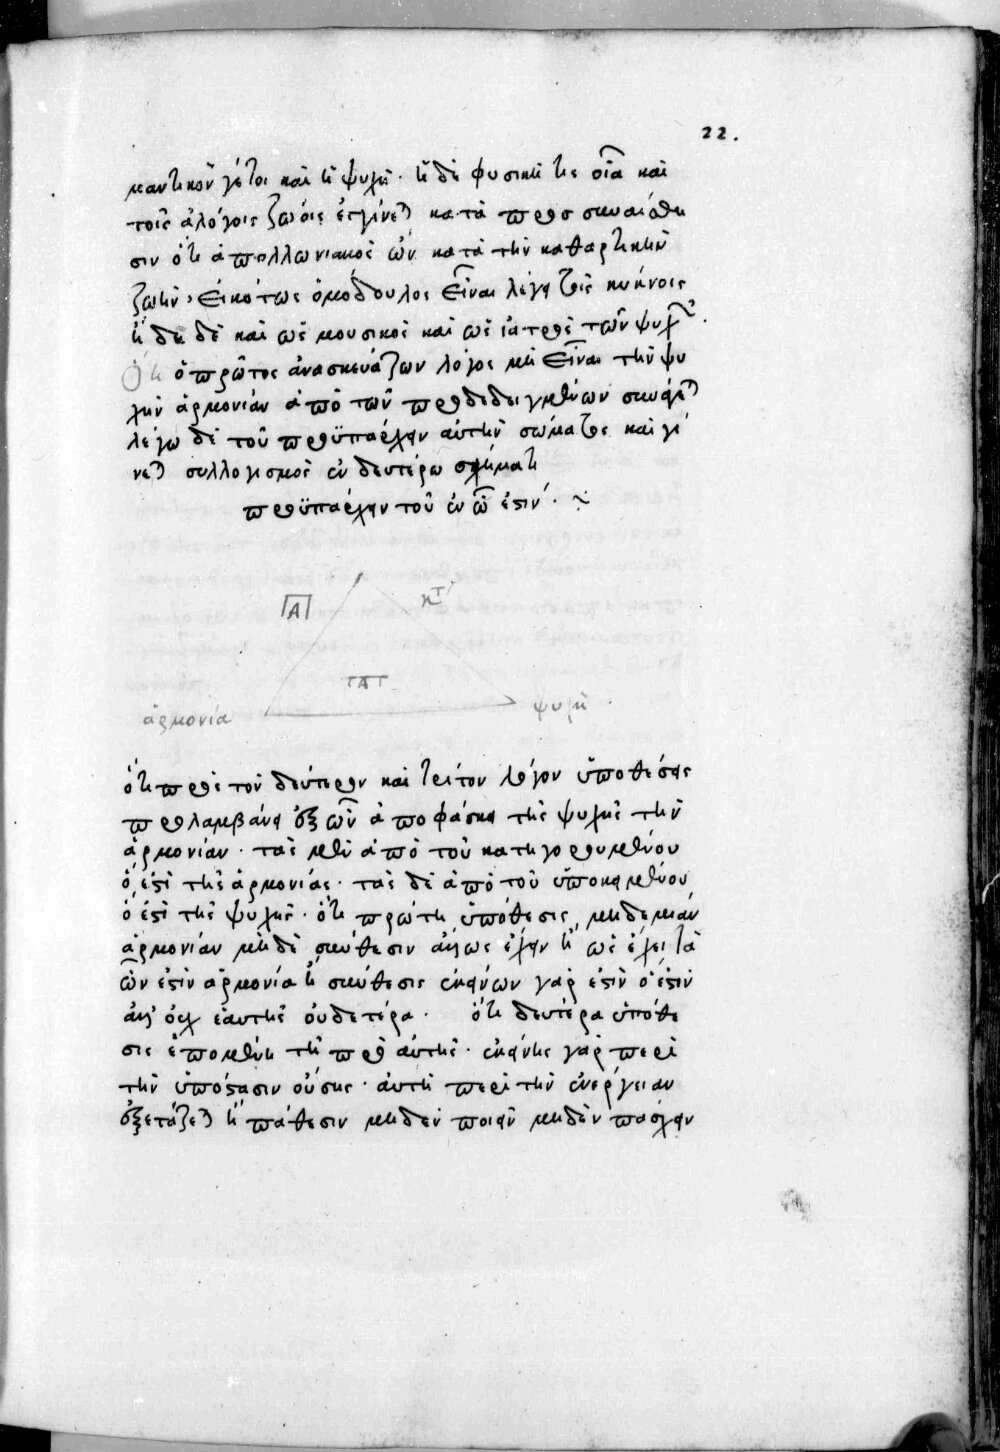 22.
μαντικόν γέ τοι καὶ ἡ ψυχή· ἡ δὲ φυσική τις οἷα καὶ
τοῖς ἀλόγοις ζώοις ἐγγίνεται κατὰ προσ συναίσθη
σιν ὅτι ἀπολλωνιακὸς ὢν κατὰ τὴν καθαρτικὴν
ζωήν, εἰκότως ὁμόδουλος εἶναι λέγει τοῖς κύκνοις
ἤδη δὲ καὶ ὡς μουσικὸς καὶ ὡς ἰατρὸς τῶν ψυχῶν.
Ὅτι ὁ πρῶτος ἀνασκευάζων λόγος μὴ εἶναι τὴν ψυ
χὴν ἁρμονίαν ἀπὸ τῶν προδεδειγμένων συνάγεται
λέγω δὲ τοῦ προϋπάρχειν αὐτὴν σώματος καὶ γί
νεται συλλογισμὸς ἐν δευτέρω σχήματι
προϋπάρχειν τοῦ ἐν ὧ ἐστίν.
ΠΑ
ΤΑΤ
ἁρμονία ψυχή
ὅτι πρὸς τὸν δεύτερον καὶ τρίτον λόγον ὑποθέσεις
προλαμβάνει ἐξ ὧν ἀποφάσκει τῆς ψυχῆς τὴν
ἁρμονίαν· τὰς μὲν ἀπὸ τοῦ κατηγορουμένου
ὅ ἐστι τῆς ἁρμονίας· τὰς δὲ ἀπὸ τοῦ ὑποκειμένου
ὅ ἐστι τῆς ψυχῆς· ὅτι πρώτη ὑπόθεσις, μηδεμίαν
ἁρμονίαν μηδὲ σύνθεσιν ἄλλως ἔχειν ἢ ὡς ἔχει τὰ
ὧν ἐστὶν ἁρμονία ἢ σύνθεσις ἐκείνων γάρ ἐστιν ὅ ἐστιν
ἀλλ' οὐχ ἑαυτῆς οὐδετέρα· ὅτι δευτέρα ὑπόθε
σις ἑπομένη τῆ πρὸ αὐτῆς· ἐκείνης γὰρ περὶ
τὴν ὑπόστασιν οὔσης· αὐτὴ περὶ τὴν ἐνέργειαν
ἐξετάζεται ἢ πάθεσιν μηδὲν ποιεῖν μηδὲν πάσχειν